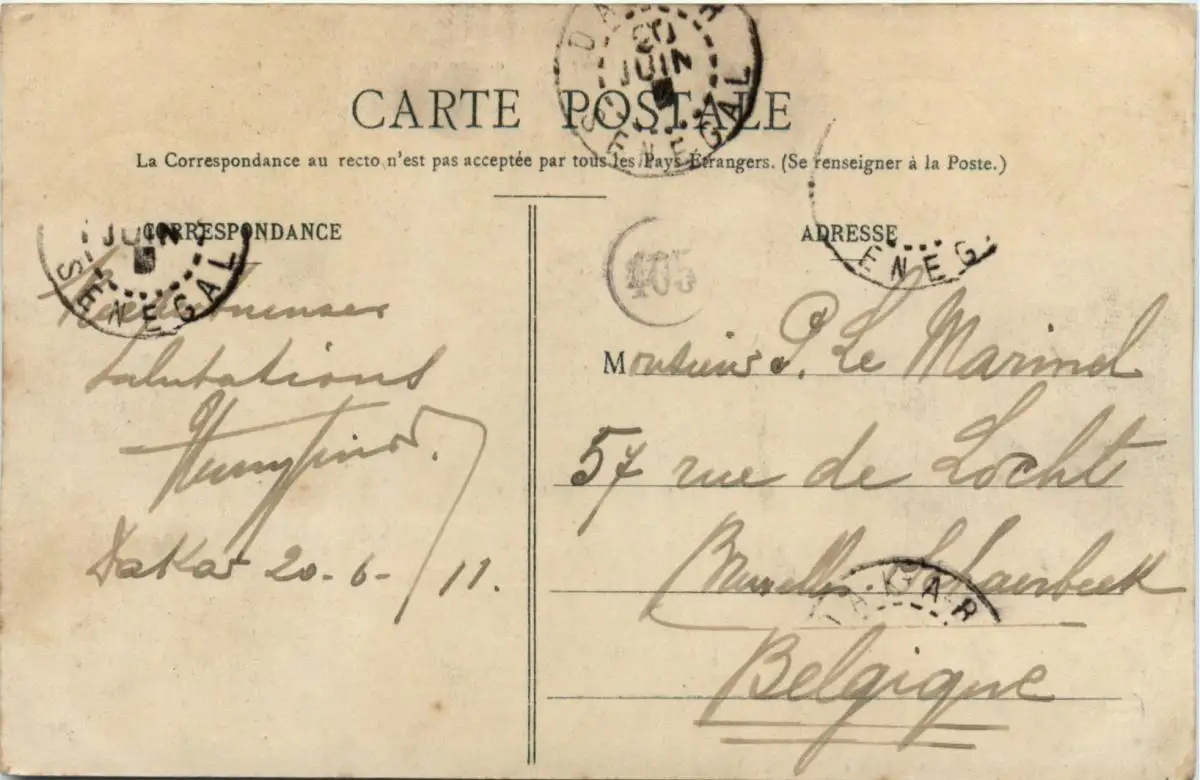 DAKAR
20
JUIN
SENEGAL
CARTE POSTALE
La Correspondance au recto n'est pas acceptée par tous les Pays Étrangers. (Se renseigner à la Poste.)
CORRESPONDANCE
JUIN
SENEGAL
salutations
Dakar 20-6-11.
405
ADRESSE
ENEG
Monsieur P. Le Marinel
57 rue de Locht
Bruxelles-Schaerbeek
AKAR
Belgique